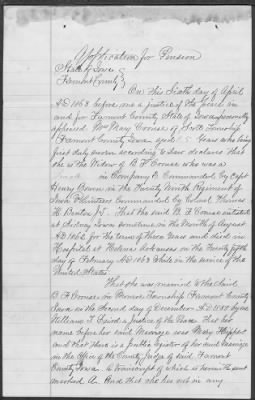 Application for Pension
State of Iowa
Fremont County
On this Sixth day of April
AD 1863 before me a justice of the peace in
and for Fremont County State of Iowa personally
appeared Mrs Mary Coonse of Scott Township
Fremont County Iowa aged years who being
first duly sworn according to law declares that
she is the Widow of B F Coonse who was a
in Company E Commanded by Capt
Henry in the Twenty Ninth Regiment of
Iowa Volunteers Commanded by Colonel Thomas
H Benton Jr. That the said B F Coonse enlisted
at Sidney Iowa sometime in the Month of August
AD 1862 for the term of three years and died in
Hospital at Helena Arkansas on the Twenty
day of February AD 1863 while in the service of the
United States
That she was married to the said
B F Coonse in Township Fremont County
Iowa on the Second day of December AD 1858 by one
William a Justice of the Peace that her
name before her said Marriage was Mary
and that there is a Public Register of her said Marriage
in the Office of the County Judge of said Fremont
County Iowa. A transcript of which is hereto
marked A. And that she has not in any